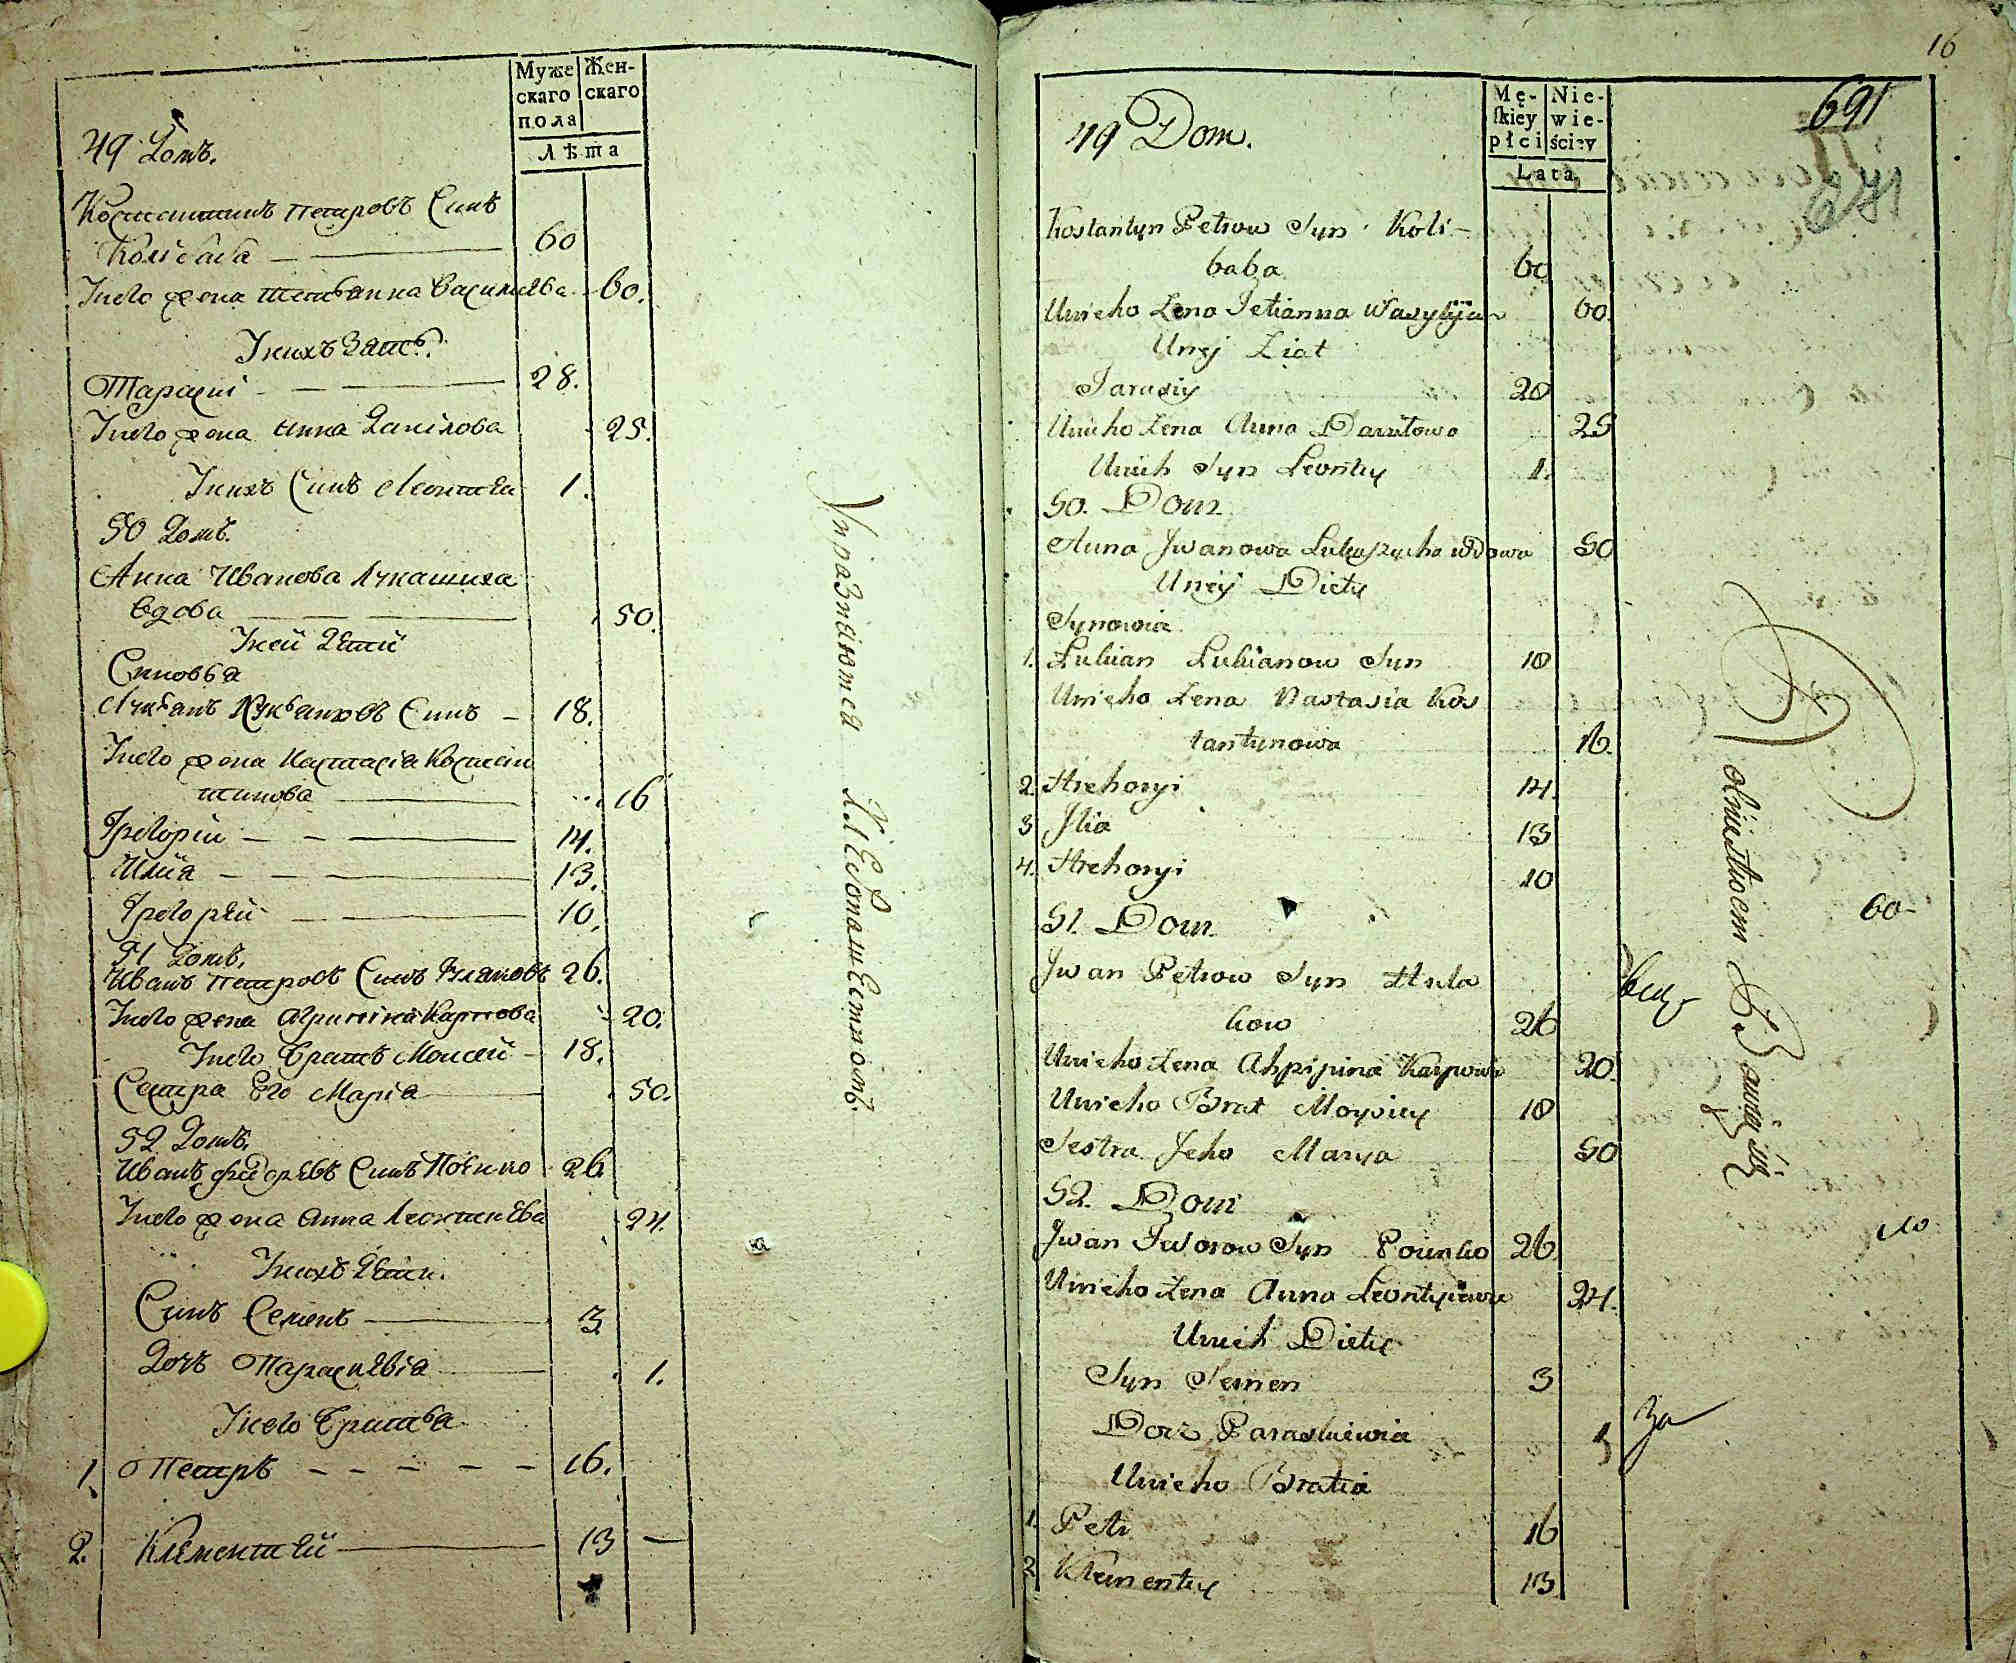 Муже
скаго
пола
Жен-
скаго
Лѣта
49 Домъ.
Костантинъ Петровъ Синъ
Колибаба 60
Унего жена Тетьянна Васильева 60.
Унихъ Зять.
Тарасій 28.
Унего жена Анна Данілова 25.
Унихъ Синъ Леонтей 1.
50 Домъ.
Анна Иванова Лукашиха
вдова 50.
Уней Дѣти
Синовья
Лукьанъ Лукьановъ Синъ 18.
Унего жена Настасіа Костан
тинова 16
Грегорій 14.
Илиа 13.
Грегорей 10.
51 Домъ.
Иванъ Петровъ Синъ 26.
Унего жена Агрипіна Карпова 20.
Унего братъ Моисей 18.
Сестра Его Маріа 50.
52 Домъ.
Иванъ Федоревъ Синъ 26
Унего жена Анна Леонтиева 24.
Унихъ Дѣти.
Синъ Семенъ 3
Дочъ Параскевіа 1.
Унего братьа
1. Петръ 16.
2. Клементей 13
Упразняютса Хлебопашествомъ.
16
691
Mę-
skiey
płci
Nie-
wie-
ściey
Lata
49 Dom.
Kostantyn Petrow Syn Koli-
baba 60
Unieho Zena Tetianna Wasylijew 60.
Uniej Ziat
Tarasiy 28
Unieho Zena Anna Daniłowa 25
Unich Syn Leontey 1.
50. Dom
Anna Jwanowa Lukaszycha wdowa 50
Uniey Diety
Synowia
1. Lukian Lukianow Syn 18
Unieho Zena Nastasia Kos
tantynowa 16.
2. Hrehoryi 14.
3 Jlia 13
4. Hrehoryi 10
51. Dom
Jwan Petrow Syn Hula
kow 26
Unieho Zena Ahripina Karpowa 20.
Unieho Brat Moysiey 18
Sestra Jeho Marya 50
52. Dom
Jwan Fedorow Syn 26
Unieho Zena Anna Leontyiewa 24.
Unich Diety
Syn Semen 3
Docz Paraskiewia 1
Unieho Bratia
1. Petr 16
2 Klementey 13
60-